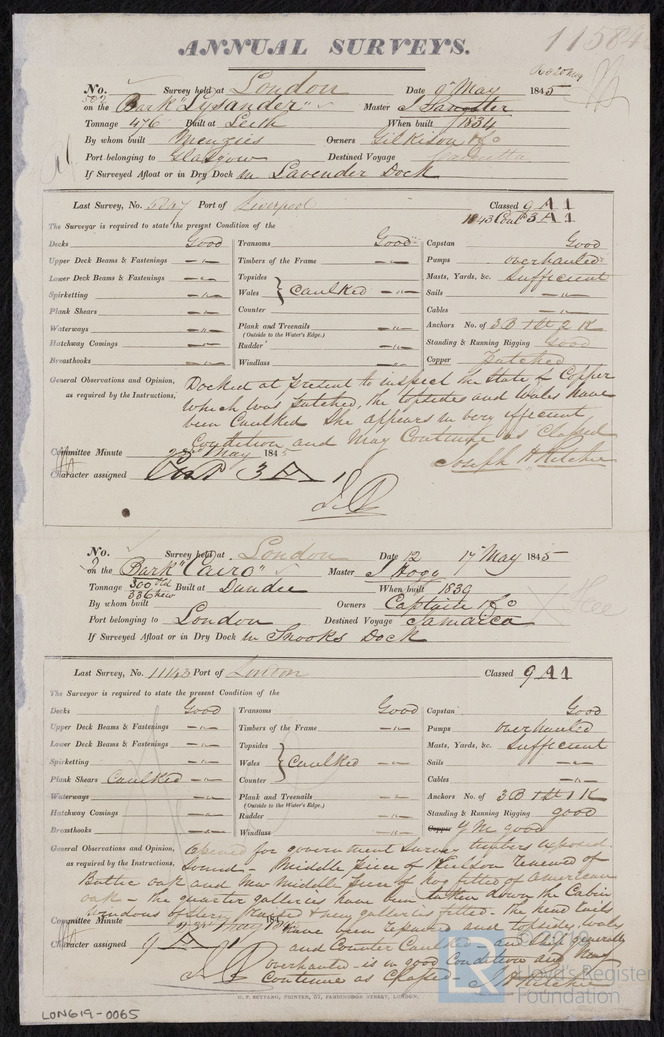 11584
ANNUAL SURVEYS.
No. 502 Survey held at London Date 9 May 1845
on the Bark "Lysander" Master J Sangster
Tonnage 476 Built at Leith When built 1834
By whom built Menzies Owners Gilkison & Co
Port belonging to Glasgow Destined Voyage Calcutta
If Surveyed Afloat or in Dry Dock in Lavender Dock
Last Survey, No. Port of Liverpool Classed 9 A1
1843 Cont 3 A1
The Surveyor is required to state the present Condition of the
Decks Good Transoms Good Capstan Good
Upper Deck Beams & Fastenings -"- Timbers of the Frame -"- Pumps overhauled
Lower Deck Beams & Fastenings -"- Topsides Masts, Yards, &c. Sufficient
Spirketting -"- Wales } Caulked -"- Sails -"-
Plank Shears -"- Counter Cables -"-
Waterways -"- Plank and Treenails -"- Anchors No. of 3B 1 St 2 K
(Outside to the Water's Edge.)
Hatchway Comings -"- Rudder -"- Standing & Running Rigging Good
Breasthooks -"- Windlass -"- Copper Patched
General Observations and Opinion, Docked at present to inspect the State of Copper
as required by the Instructions, which was patched, the topside and Wales have
been Caulked She appears in very efficient
Condition and May Continue as Classed
Committee Minute 23rd May 1845 Joseph H Ritchie
Character assigned Cont 3 A 1
No. Survey held at London Date 12 17 May 1845
on the Bark "Cairo" Master J Hogg
Tonnage 300 old 336 new Built at Dundee When built 1839
By whom built Owners Captain & Co
Port belonging to London Destined Voyage Jamaica
If Surveyed Afloat or in Dry Dock in Snooks Dock
Last Survey, No. 11143 Port of London Classed 9 A1
The Surveyor is required to state the present Condition of the
Decks Good Transoms Good Capstan Good
Upper Deck Beams & Fastenings -"- Timbers of the Frame -"- Pumps overhauled
Lower Deck Beams & Fastenings -"- Topsides Masts, Yards, &c. Sufficient
Spirketting -"- Wales } Caulked -"- Sails -"-
Plank Shears Caulked -"- Counter Cables -"-
Waterways -"- Plank and Treenails -"- Anchors No. of 3B 1 St 1 K
(Outside to the Water's Edge.)
Hatchway Comings -"- Rudder -"- Standing & Running Rigging good
Breasthooks -"- Windlass -"- Copper Y M good
General Observations and Opinion, Opened for government Survey timbers exposed
as required by the Instructions, Sound - Middle piece of renewed of
Baltic oak and New Middle piece of Keel fitted of American
oak - the quarter galleries have been taken down the Cabin
windows of Stern & new galleries fitted - the head rails
have been repaired and topsides, wales
Committee Minute 23rd May 1845
and Counter Caulked - and Ship generally
Character assigned 9 A 1
overhauled - is in good Condition and may
Continue as Classed - J H Ritchie
© 2019
LR
Lloyd's Register
Foundation
PRINTER, 57, FARRINGDON STREET, LONDON.
LON619-0065